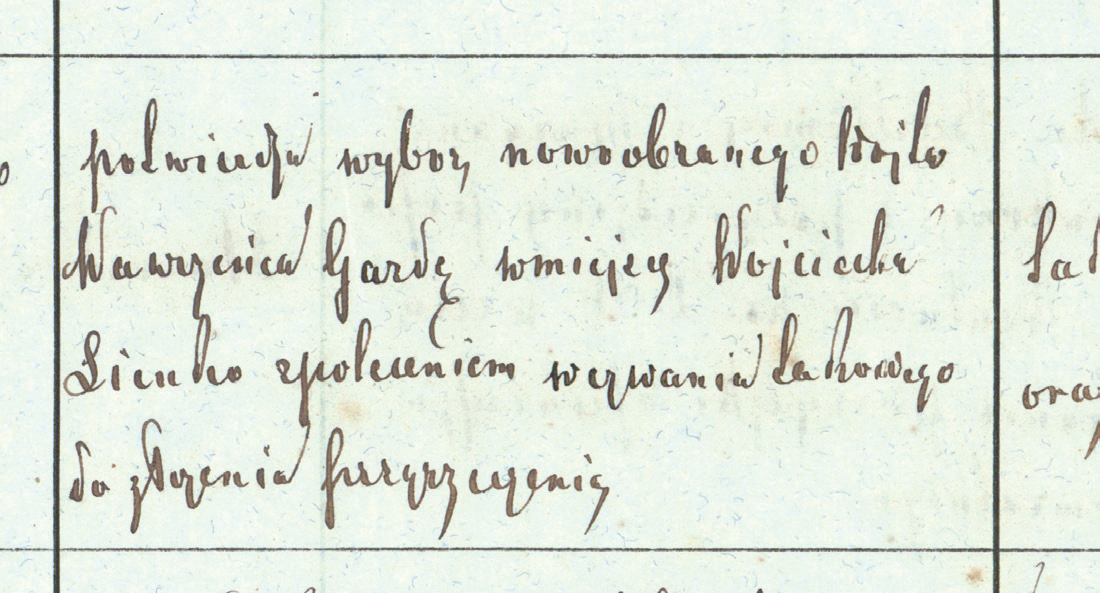 potwierdza wybor nowoobranego Wojta
Wawrzeńca Gardę wmiejscy Wojciecha
Lieńko zpoleceniem wezwania takowego
do złozenia przyrzeczenią